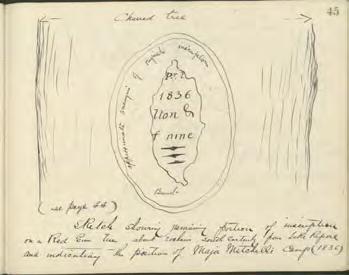 45
Charred tree
approximate margin of original inscription
1836
Bark
(see page 44)
Sketch showing remaining portion of inscription
on a Red Gum tree about south from Lake Repose
and indicating the position of Major Mitchell's Camp (1836)